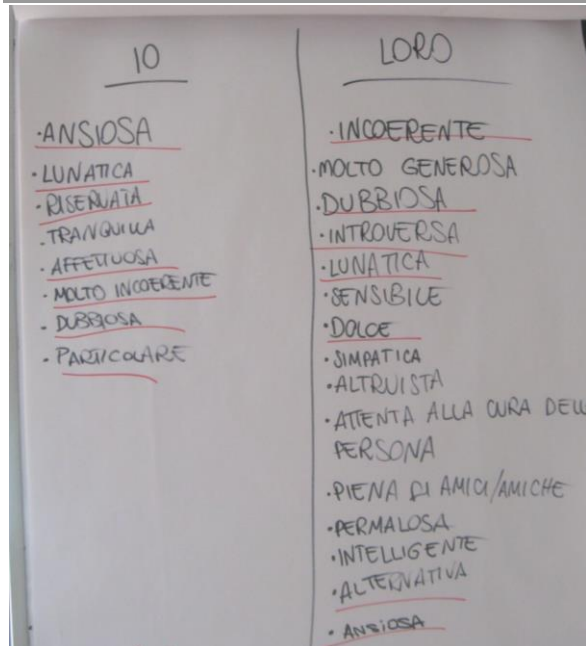 IO
·ANSIOSA
·LUNATICA
·RISERVATA
·TRANQUILLA
·AFFETTUOSA
·MOLTO INCOERENTE
·DUBBIOSA
·PARTICOLARE
LORO
·INCOERENTE
·MOLTO GENEROSA
·DUBBIOSA
·INTROVERSA
·LUNATICA
·SENSIBILE
·DOLCE
·SIMPATICA
·ALTRUISTA
·ATTENTA ALLA CURA DELL
PERSONA
·PIENA DI AMICI/AMICHE
·PERMALOSA
·INTELLIGENTE
·ALTERNATIVA
·ANSIOSA